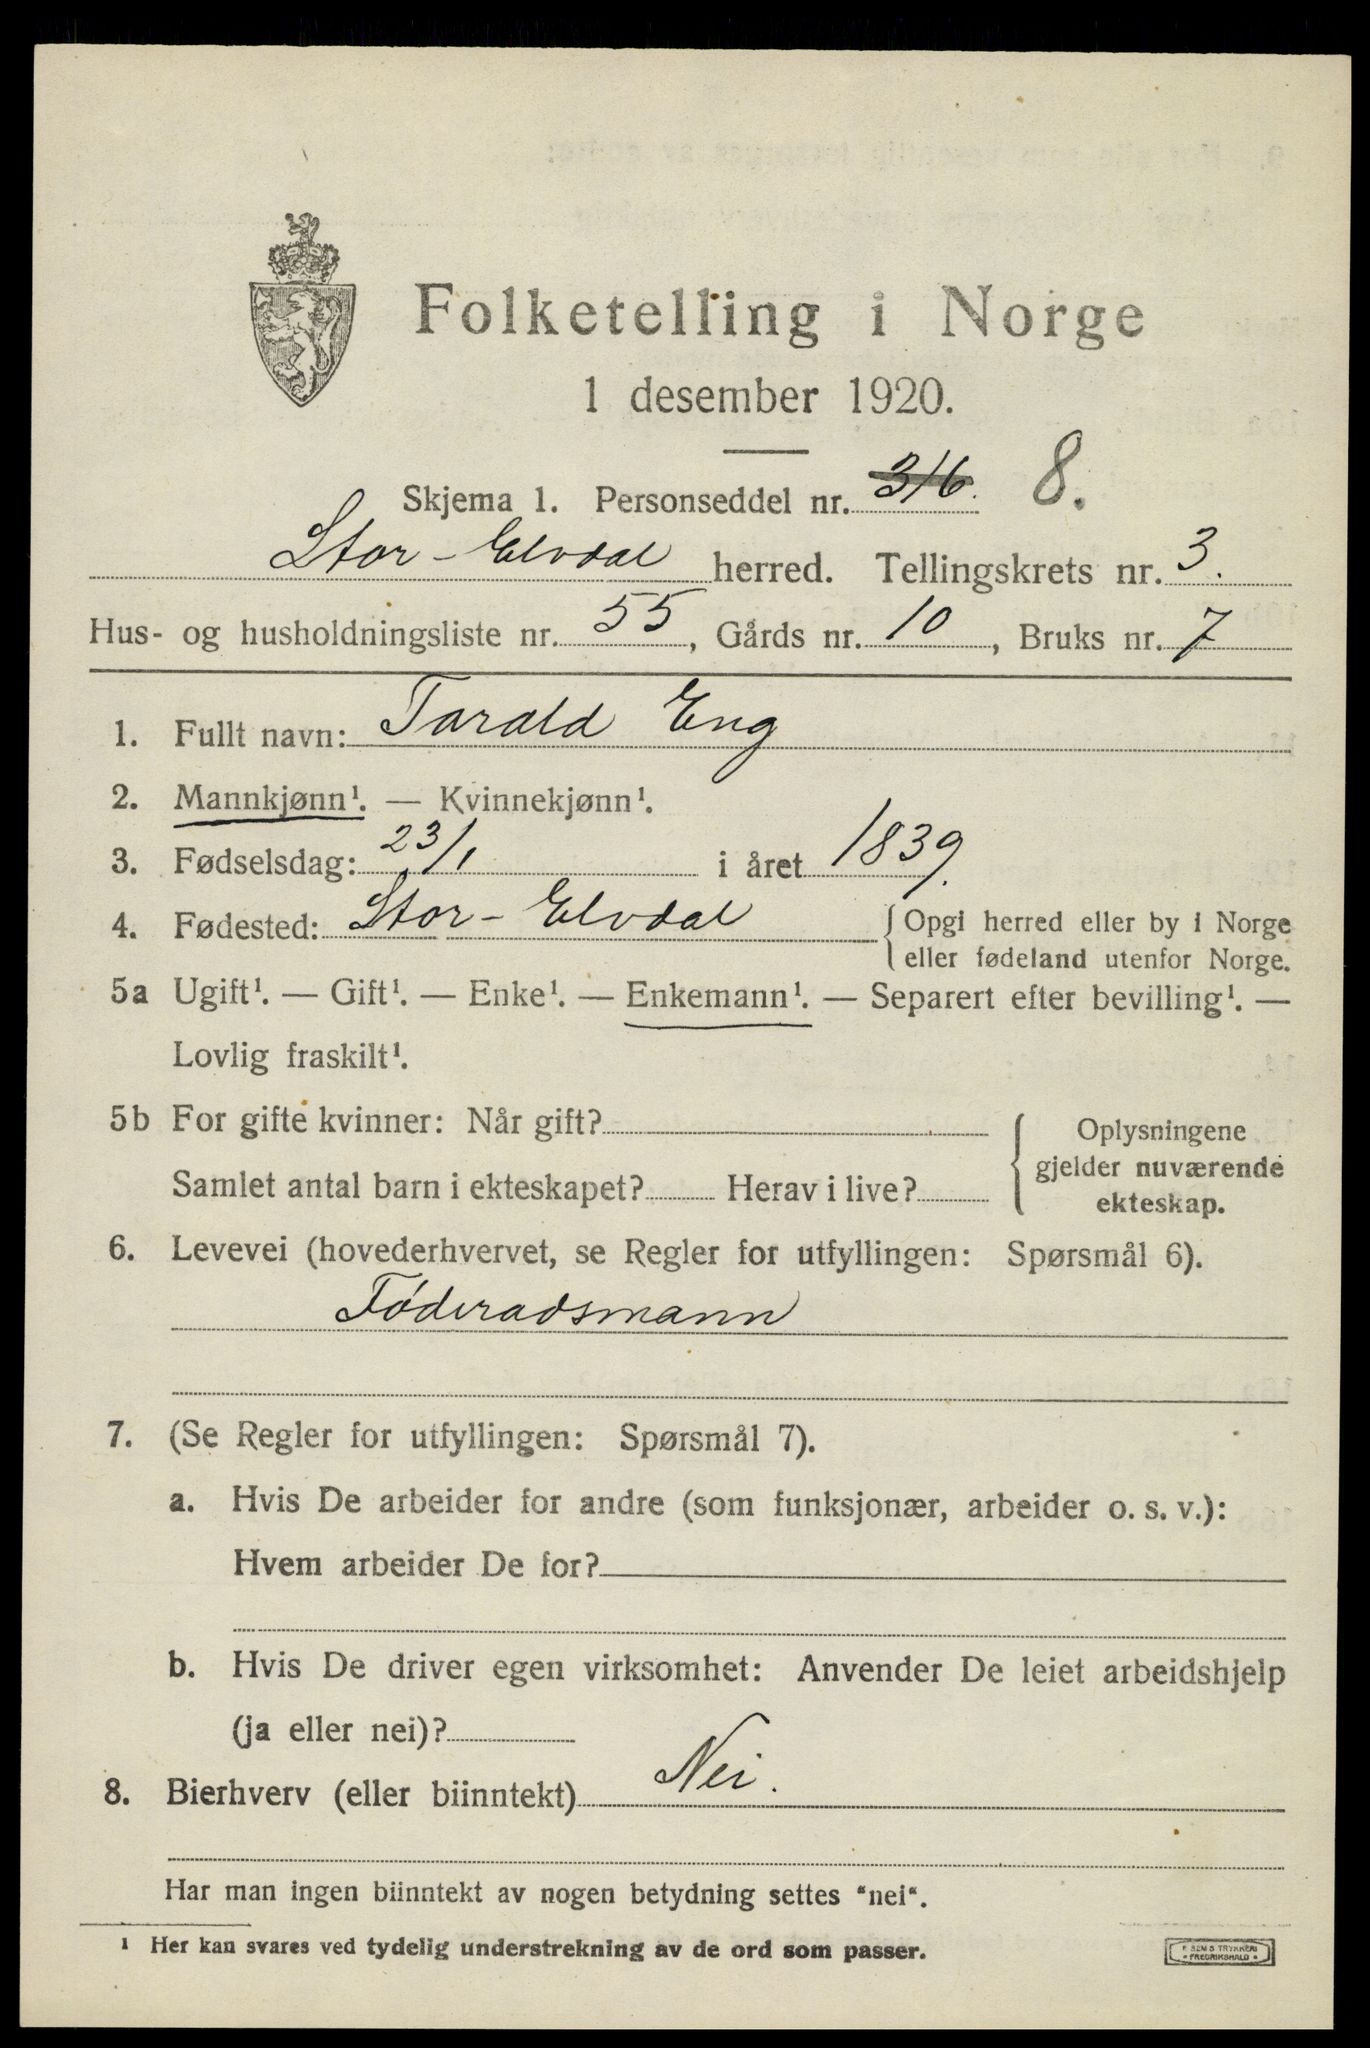 Folketelling i Norge
1 desember 1920.
Skjema 1. Personseddel nr. 316. 8.
Stor-Elvdal herred. Tellingskrets nr. 3.
Hus- og husholdningsliste nr. 55, Gårds nr. 10, Bruks nr. 7
1. Fullt navn: Tarald Eng
2. Mannkjønn¹. — Kvinnekjønn¹.
3. Fødselsdag: 23/1 i året 1839.
4. Fødested: Stor-Elvdal { Opgi herred eller by i Norge
eller fødeland utenfor Norge.
5a Ugift¹. — Gift¹. — Enke¹. — Enkemann¹. — Separert efter bevilling¹. —
Lovlig fraskilt¹.
5b For gifte kvinner: Når gift?
Samlet antal barn i ekteskapet? Herav i live?
{ Oplysningene
gjelder nuværende
ekteskap.
6. Levevei (hovederhvervet, se Regler for utfyllingen: Spørsmål 6).
Föderadsmann
7. (Se Regler for utfyllingen: Spørsmål 7).
a. Hvis De arbeider for andre (som funksjonær, arbeider o. s. v.):
Hvem arbeider De for?
b. Hvis De driver egen virksomhet: Anvender De leiet arbeidshjelp
(ja eller nei)?
8. Bierhverv (eller biinntekt) Nei.
Har man ingen biinntekt av nogen betydning settes "nei".
¹ Her kan svares ved tydelig understrekning av de ord som passer.
F. SEM'S TRYKKERI
FREDRIKSHALD